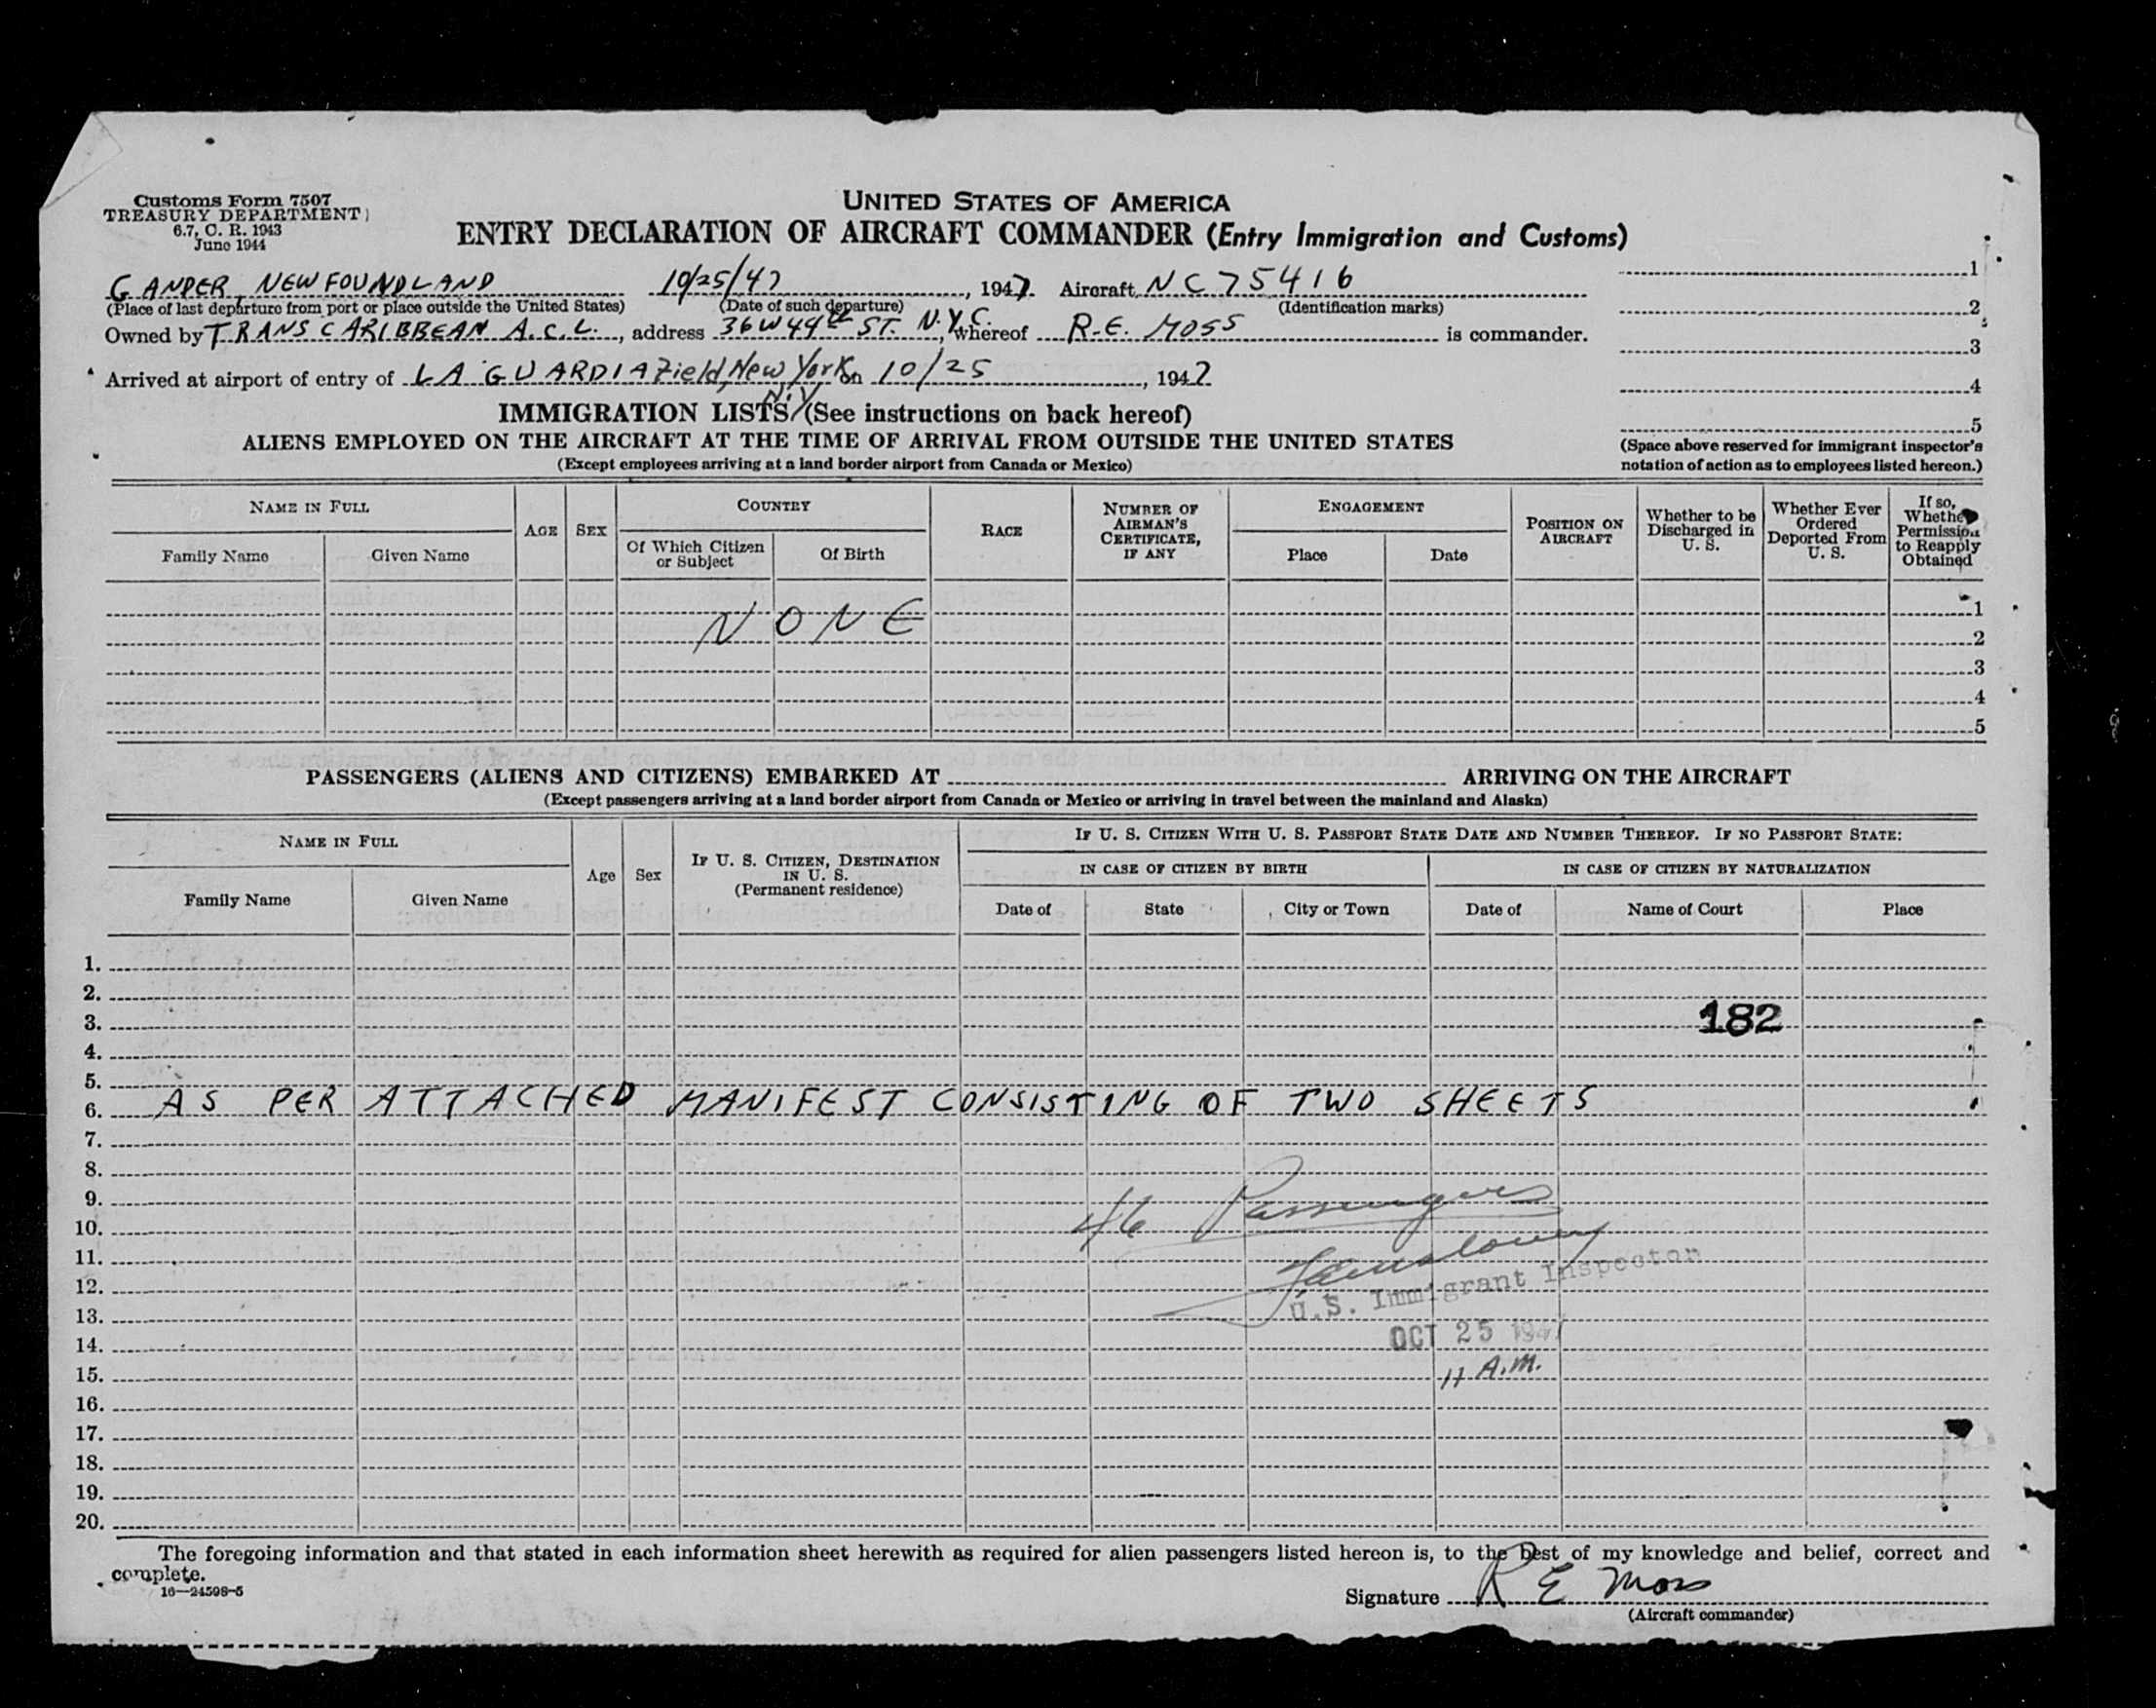 Customs Form 7507
TREASURY DEPARTMENT
6.7, C. R. 1943
June 1944
UNITED STATES OF AMERICA
ENTRY DECLARATION OF AIRCRAFT COMMANDER (Entry Immigration and Customs)
GANDER, NEWFOUNDLAND 10/25/47, 1947. Aircraft NC75416
(Place of last departure from port or place outside the United States) (Date of such departure) (Identification marks)
Owned by TRANS CARIBBEAN A.C.L., address 36 W 44th ST. N.Y.C., whereof R.E. MOSS is commander.
Arrived at airport of entry of LA GUARDIA Field, New York, N.Y. on 10/25, 1947
1
2
3
4
5
(Space above reserved for immigrant inspector's
notation of action as to employees listed hereon.)
IMMIGRATION LISTS (See instructions on back hereof)
ALIENS EMPLOYED ON THE AIRCRAFT AT THE TIME OF ARRIVAL FROM OUTSIDE THE UNITED STATES
(Except employees arriving at a land border airport from Canada or Mexico)
NAME IN FULL
Family Name Given Name
AGE SEX
COUNTRY
Of Which Citizen or Subject Of Birth
RACE
NUMBER OF AIRMAN'S CERTIFICATE, IF ANY
ENGAGEMENT
Place Date
POSITION ON AIRCRAFT
Whether to be Discharged in U. S.
Whether Ever Ordered Deported From U. S.
If so, Whether Permission to Reapply Obtained
1
NONE
2
3
4
5
PASSENGERS (ALIENS AND CITIZENS) EMBARKED AT ARRIVING ON THE AIRCRAFT
(Except passengers arriving at a land border airport from Canada or Mexico or arriving in travel between the mainland and Alaska)
NAME IN FULL
Family Name Given Name
Age Sex
IF U. S. CITIZEN, DESTINATION IN U. S. (Permanent residence)
IF U. S. CITIZEN WITH U. S. PASSPORT STATE DATE AND NUMBER THEREOF. IF NO PASSPORT STATE:
IN CASE OF CITIZEN BY BIRTH IN CASE OF CITIZEN BY NATURALIZATION
Date of State City or Town Date of Name of Court Place
1.
2.
3. 182
4.
5.
6. AS PER ATTACHED MANIFEST CONSISTING OF TWO SHEETS
7.
8.
9.
10. 46 Passengers
11.
12. U.S. Immigrant Inspector
13.
14. OCT 25 1947
15. 11 A.M.
16.
17.
18.
19.
20.
The foregoing information and that stated in each information sheet herewith as required for alien passengers listed hereon is, to the best of my knowledge and belief, correct and
complete.
16—24598-5
Signature R E Moss
(Aircraft commander)